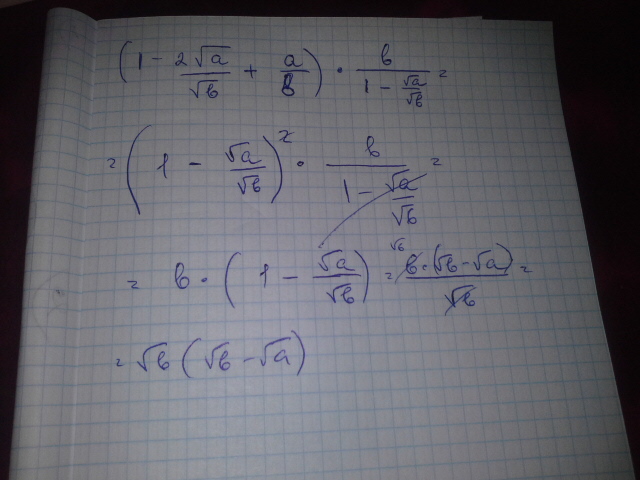 (1 - 2√a/√b + a/b) · b/(1 - √a/√b) =
= (1 - √a/√b)² · b/(1 - √a/√b) =
= b · (1 - √a/√b) = √b b·(√b - √a)/√b =
= √b (√b - √a)